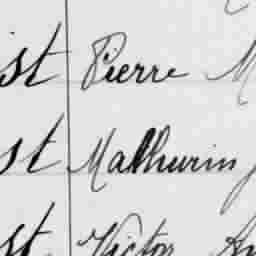 ist Pierre M
st Mathurin
st Victor